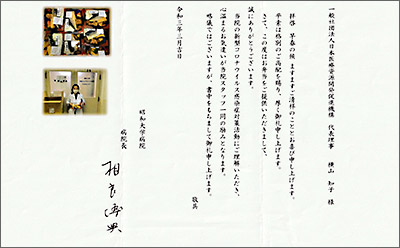 一般社団法人日本医療資源開発促進機構　代表理事　横山　知子　様
拝啓　早春の候　ますますご清祥のこととお喜び申し上げます。
平素は格別のご高配を賜り、厚く御礼申し上げます。
さて、この度はお弁当をご提供いただきまして、
誠にありがとうございます。
当院の新型コロナウイルス感染症対策活動にご理解いただき、
心温まるお気遣いが当院スタッフ一同の励みとなります。
略儀ではございますが、書中をもちまして御礼申し上げます。
敬具
令和三年三月吉日
昭和大学病院
病院長
相良博典